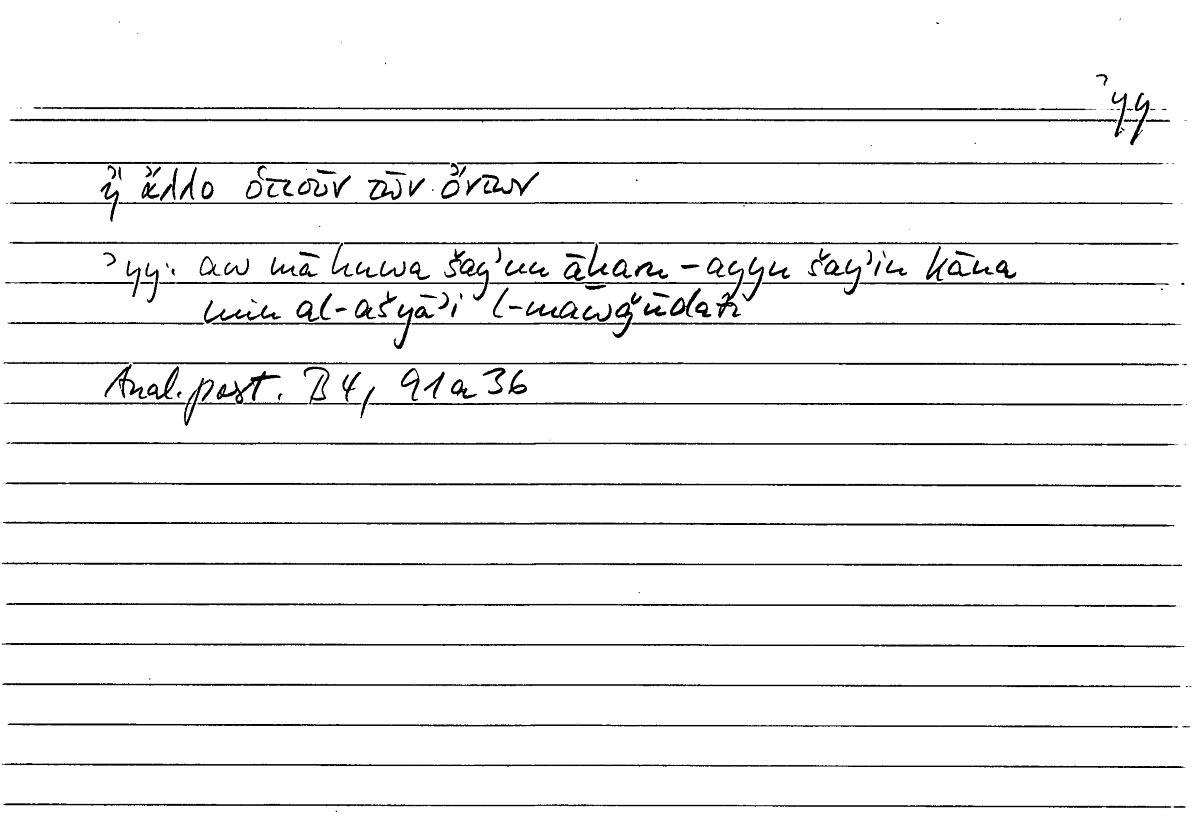 ʾyy
ἢ ἄλλο ὁτιοῦν τῶν ὄντων
ʾyy: aw mā huwa šayʾun āḫaru – ayyu šayʾin kāna
min al-ašyāʾi l-mawǧūdati
Anal. post. B 4, 91 a 36